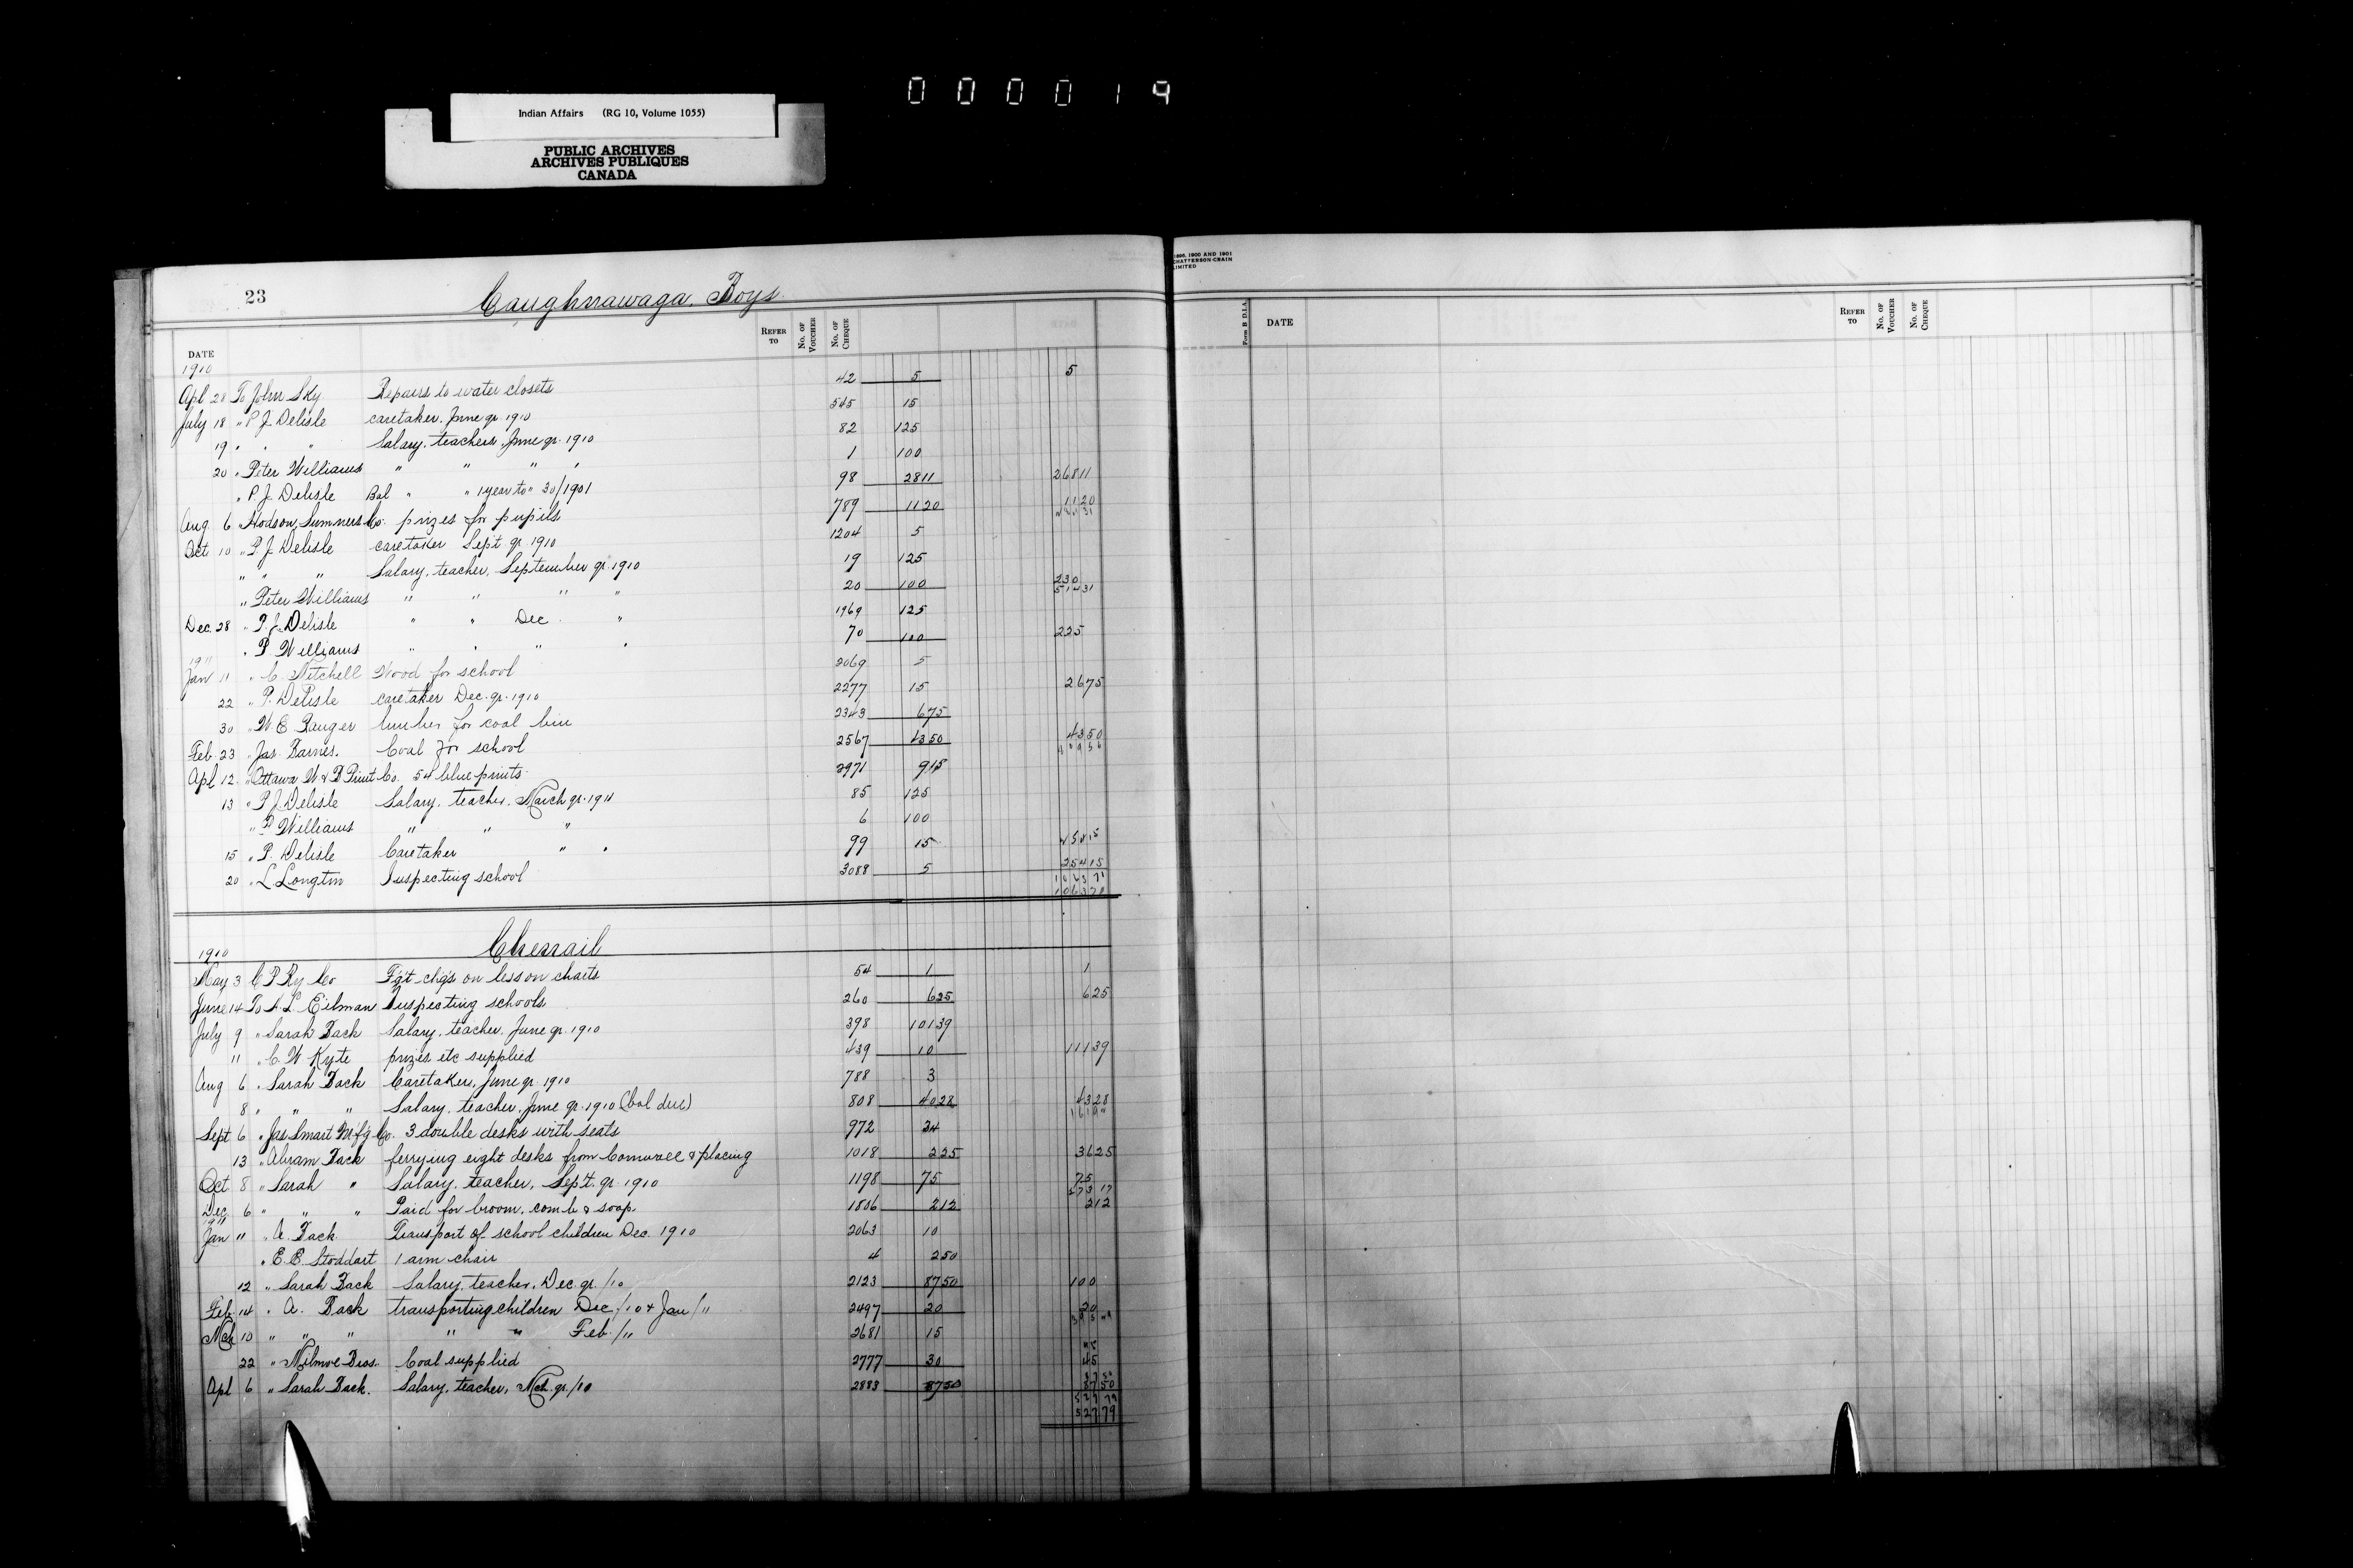 000019
Indian Affairs (RG 10, Volume 1055)
PUBLIC ARCHIVES
ARCHIVES PUBLIQUES
CANADA
23 Caughnawaga, Boys
DATE REFER TO No. OF VOUCHER No. OF CHEQUE
1910
Apl 28 To John Sky Repairs to water closets 42 5 5
July 18 " P J Delisle caretaker, June qr. 1910 545 15
19 " " " Salary, teacher, June qr. 1910 82 125
20 " Peter Williams " " " " 1 100
" P. J. Delisle Bal " " 1 year to " 30/1901 98 2811 26811
Aug 6 Hodson, Sumner & Co. prizes for pupils 789 1120 1120
Oct 10 " P. J. Delisle caretaker Sept qr 1910 1204 5
" " " Salary, teacher, September qr. 1910 19 125
" Peter Williams " " " " 20 100 230
51431
Dec. 28 " P. J. Delisle " " Dec. " 1969 125
" P. Williams " " " " 70 100 225
1911
Jan 11 " C. Mitchell Wood for school 2069 5
22 " P. Delisle caretaker Dec. qr. 1910 2277 15 2675
30 " W E Ranger lumber for coal bin 2343 675
Feb 23 " Jas. Barnes. Coal for school 2567 4350 4350
Apl 12 " Ottawa W & B Print Co. 54 blue prints 2971 915
13 " P J Delisle Salary, teacher, March qr. 1911 85 125
" P Williams " " " 6 100
15 " P. Delisle Caretaker " " 99 15
20 " L Longtin Inspecting school 3088 5 25415
106371
Chenail
1910
May 3 C P Ry Co F'g't ch'g's on lesson charts 54 1 1
June 14 To A. L. Gilman Inspecting schools 260 625 625
July 9 " Sarah Back Salary, teacher, June qr. 1910 398 10139
11 " C. W Kyte prizes etc supplied 439 10 11139
Aug 6 " Sarah Back Caretaker, June qr 1910 788 3
8 " " " Salary, teacher, June qr. 1910 (bal due) 808 4028 4328
Sept 6 " Jas Smart M'f'g Co. 3 double desks with seats 972 34
13 " Abram Back ferrying eight desks from Cornwall & placing 1018 225 3625
Oct 8 " Sarah " Salary, teacher, Sep't. qr. 1910 1198 75 75
Dec. 6 " " " Paid for broom, comb & soap 1806 212 212
1911
Jan 11 " A. Back Transport of school children Dec. 1910 2063 10
" E. B. Stoddart 1 arm chair 4 250
12 " Sarah Back Salary, teacher, Dec. qr. /10 2123 8750 100
Feb. 14 " A. Back transporting children Dec /10 & Jan /11 2497 20 20
Mch 10 " " " " " Feb. /11 2681 15
22 " Bros. Coal supplied 2777 30 45
Apl 6 " Sarah Back. Salary, teacher, Mch. qr. /10 2883 8750 8750
52779
1896, 1900 AND 1901
CHATTERSON-CRAIN
LIMITED
Form B D.I.A.
DATE REFER TO No. OF VOUCHER No. OF CHEQUE